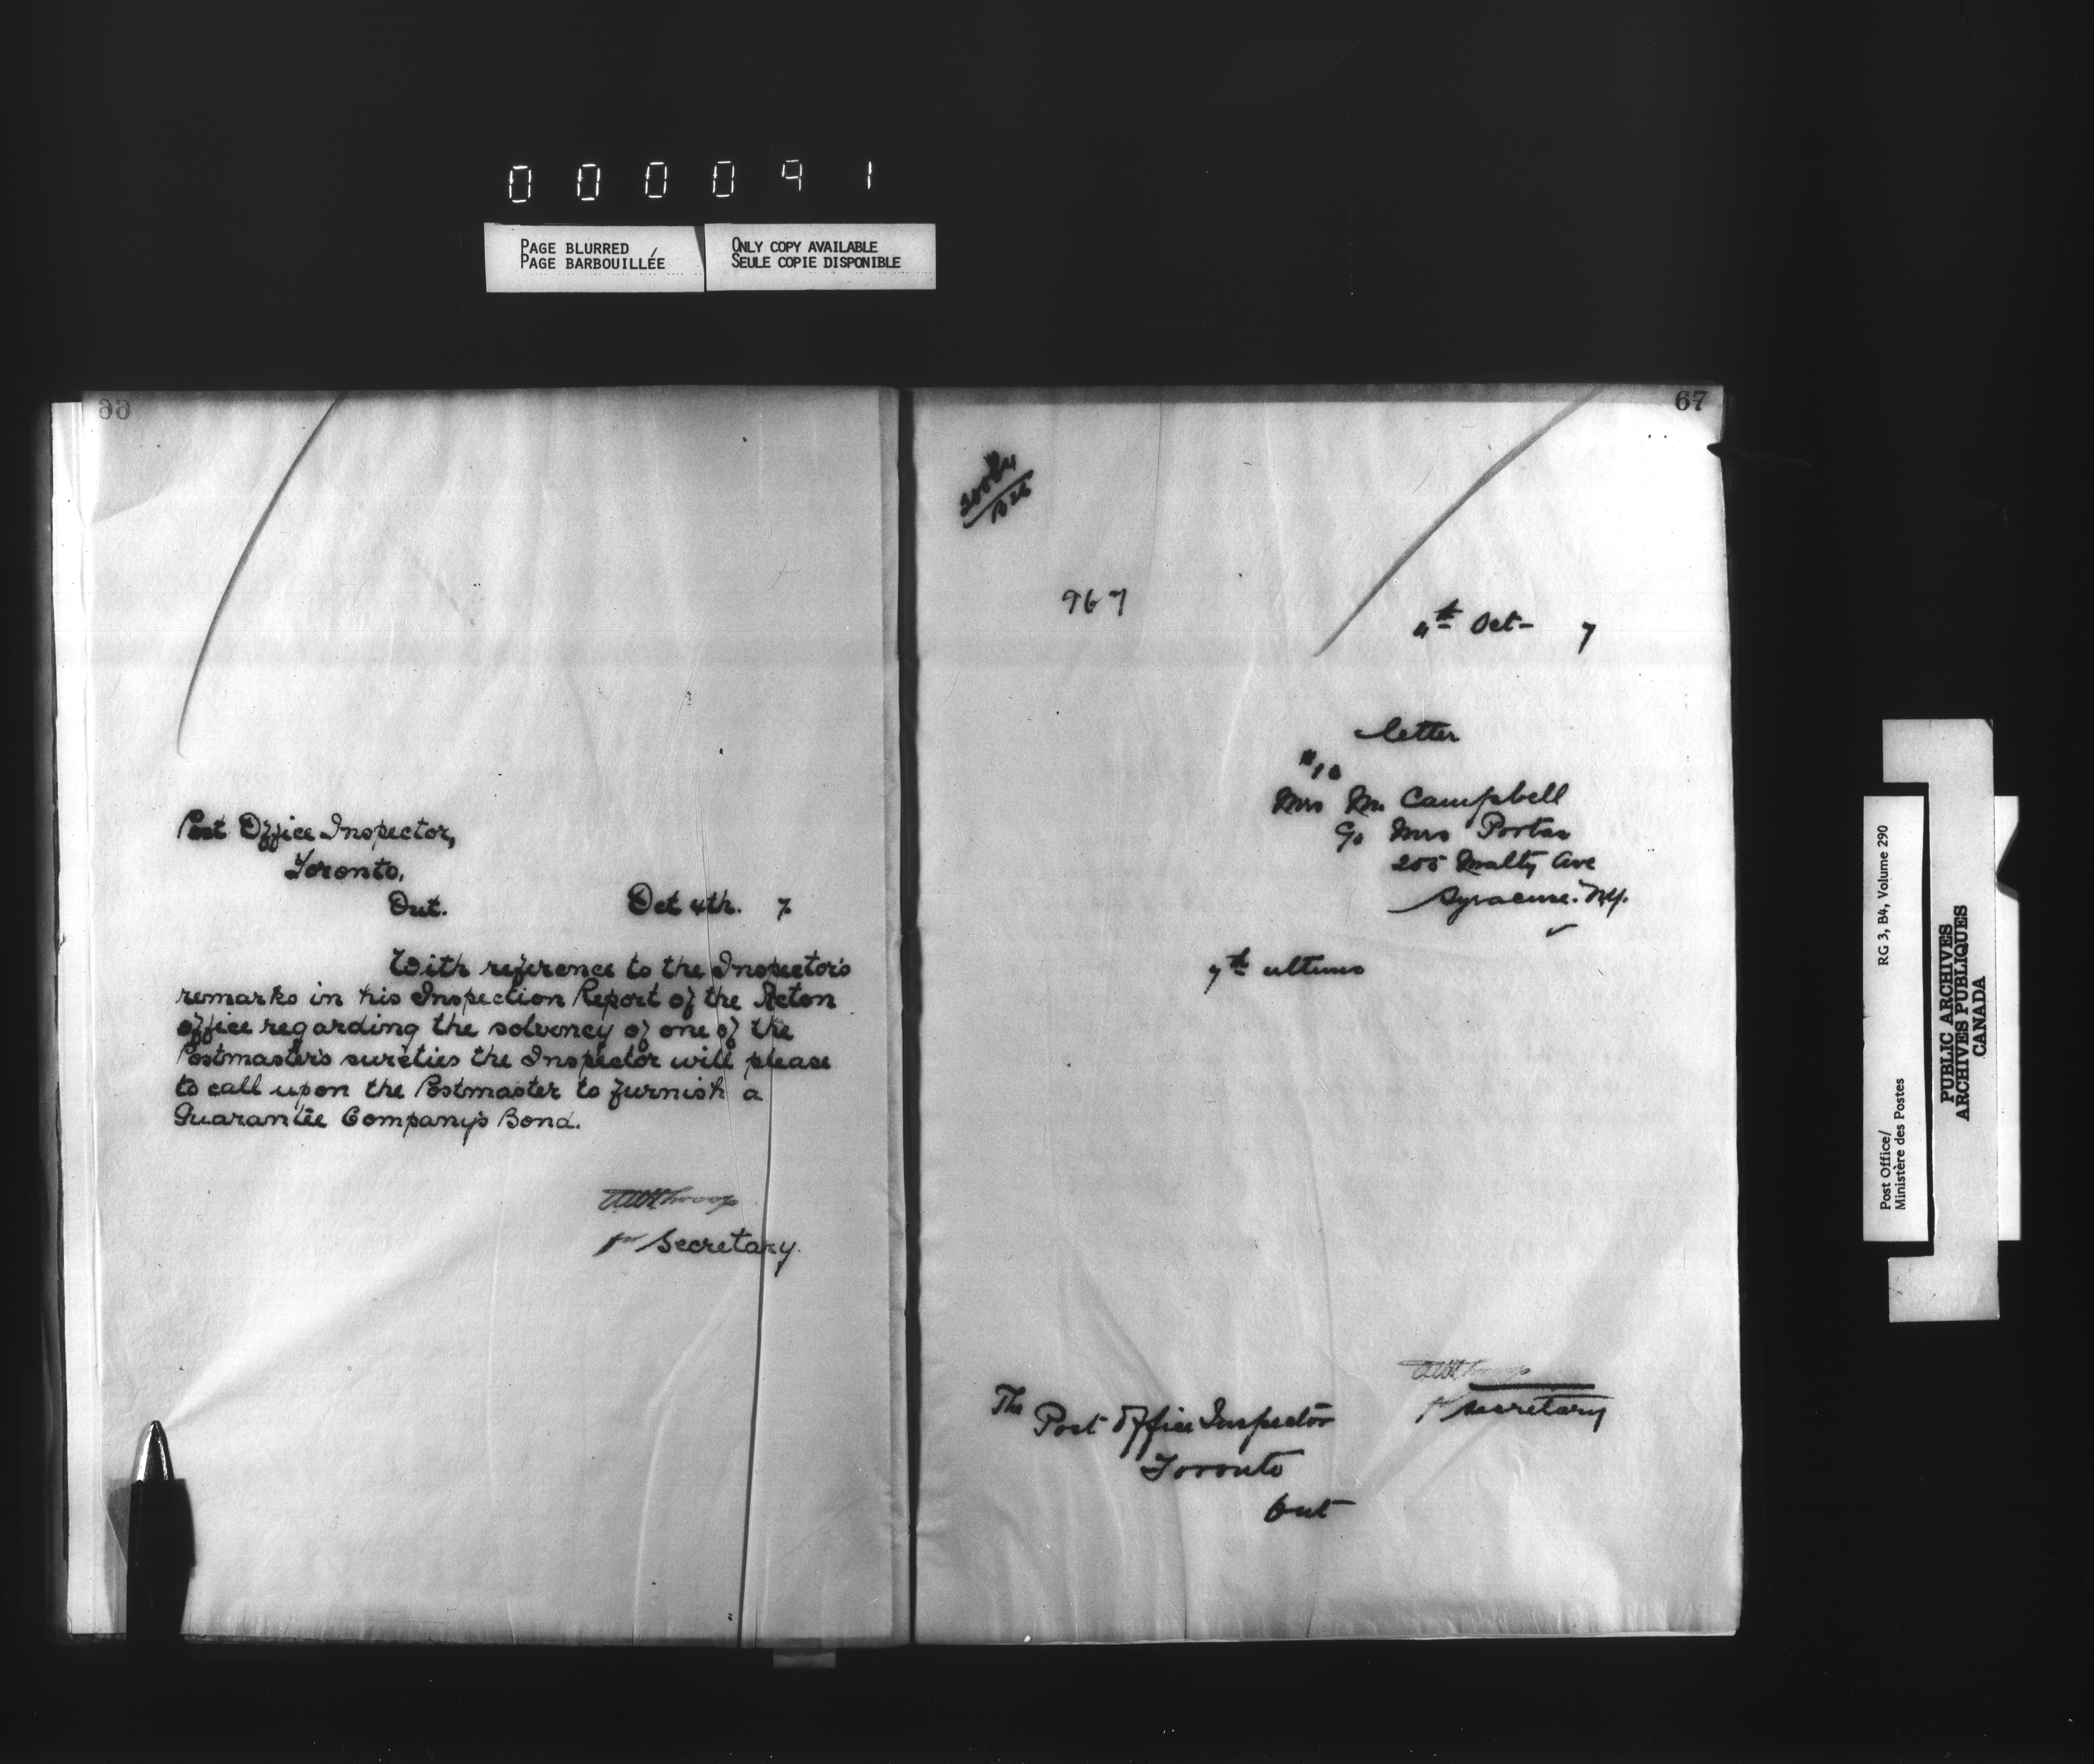 000091
PAGE BLURRED
PAGE BARBOUILLÉE
ONLY COPY AVAILABLE
SEULE COPIE DISPONIBLE
66
Post Office Inspector,
Toronto.
Ont. Oct 4th. 7
With reference to the Inspector's
remarks in his Inspection Report of the Acton
office regarding the solvency of one of the
Postmaster's sureties the Inspector will please
to call upon the Postmaster to furnish a
Guarantee Company's Bond.
Secretary.
67
967
4th Oct- 7
letter
#10
Mrs M. Campbell
c/o Mrs Porter
205 Ave
Syracuse. N.Y.
7th ultimo
secretary
The
Post Office Inspector
Toronto
Ont
Post Office/
Ministère des Postes
RG 3, B4, Volume 290
PUBLIC ARCHIVES
ARCHIVES PUBLIQUES
CANADA